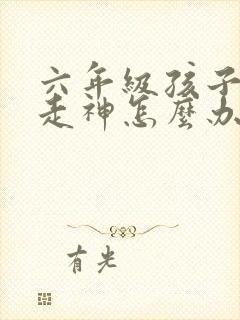 六年级孩子
走神怎麽办
有光